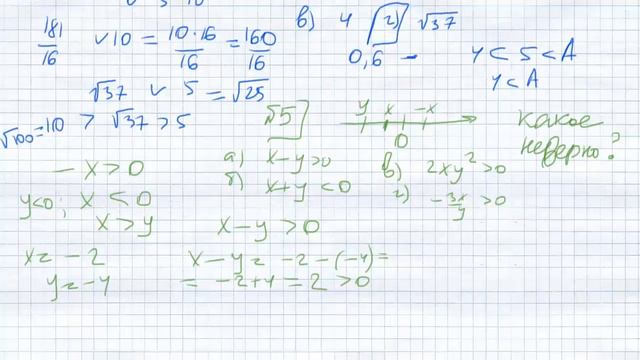 181/16 ∨ 10 = 10·16/16 = 160/16
в) 4 г) √37
0,6 -
y < 5 < A
y < A
√37 ∨ 5 = √25
√100 = 10 > √37 > 5
№5
y x -x
0
какое
неверно?
- x > 0
y<0; x < 0
x > y
а) x-y>0
б) x+y<0
в) 2xy² > 0
г) -3x/y > 0
x - y > 0
x = -2
y = -4
x - y = -2 - (-4) =
= -2+4 = 2 > 0